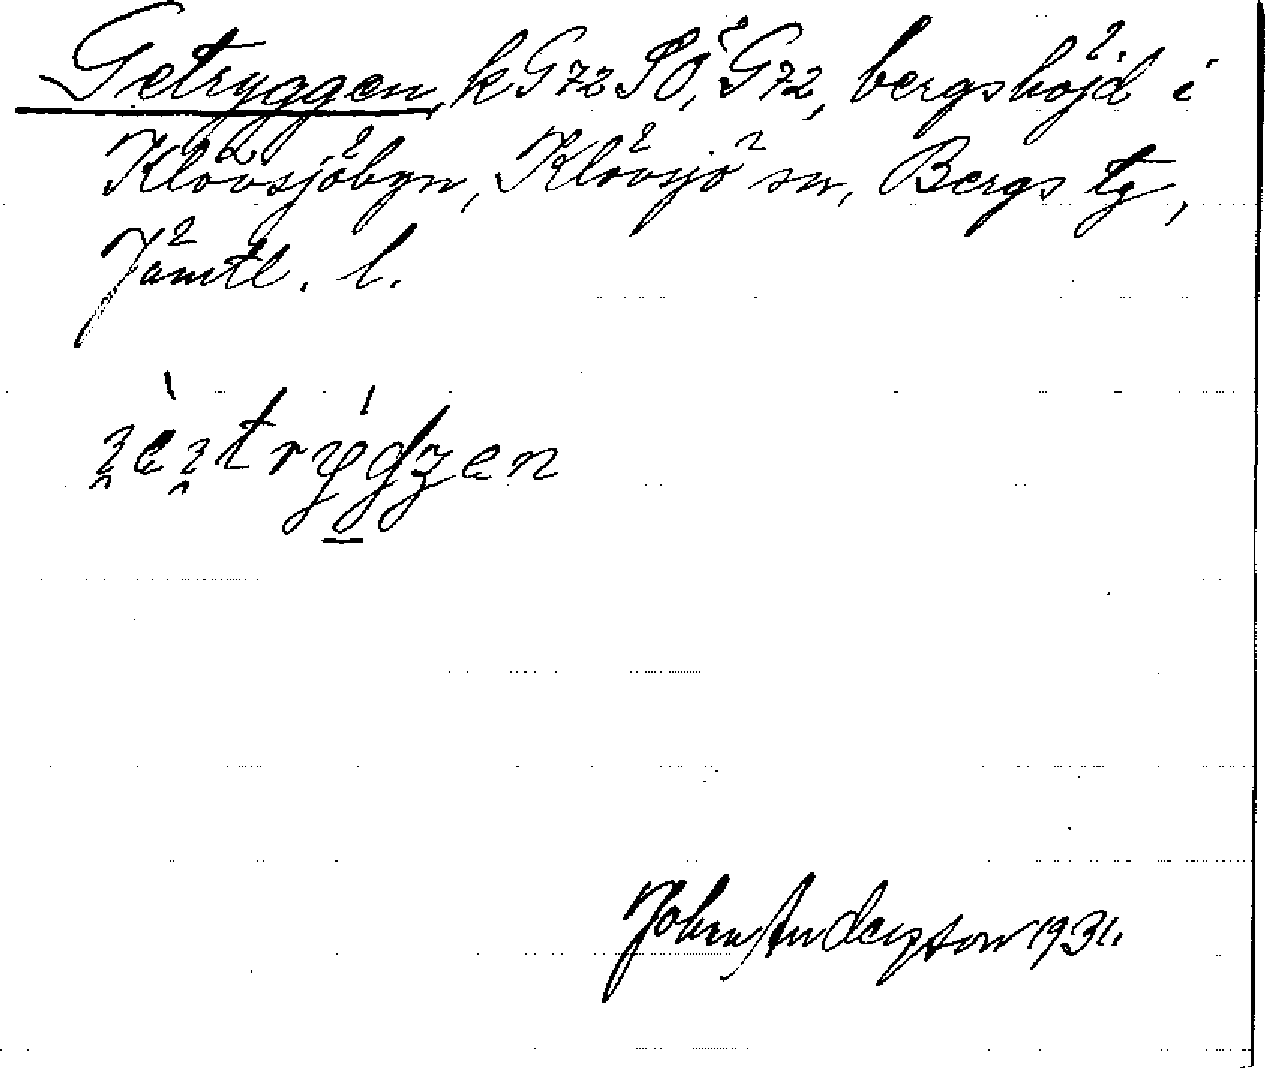 Getryggen, k G 72 SO, G 72, bergshöjd i
Klövsjöbyn, Klövsjö sn, Bergs tg,
Jämtl. l.
John Andersson 1931.